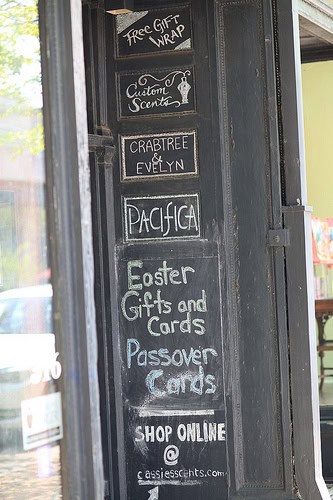 FREE GIFT
WRAP
Custom
Scents
CRABTREE
&
EVELYN
PACIfICA
Easter
Gifts and
Cards
Passover
Cards
SHOP ONLINE
@
cassiesscents.com